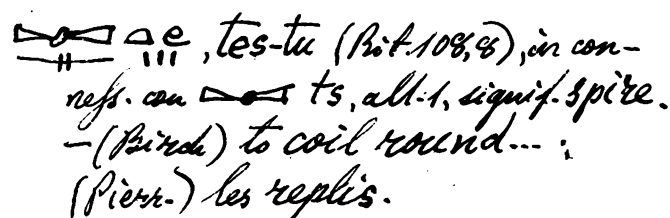 , tes-tu (Rit. 108,8), in con-
ness. con ts, all. 1, signif. spire.
- (Birch) to coil round... ;
(Pierr.) les replis.